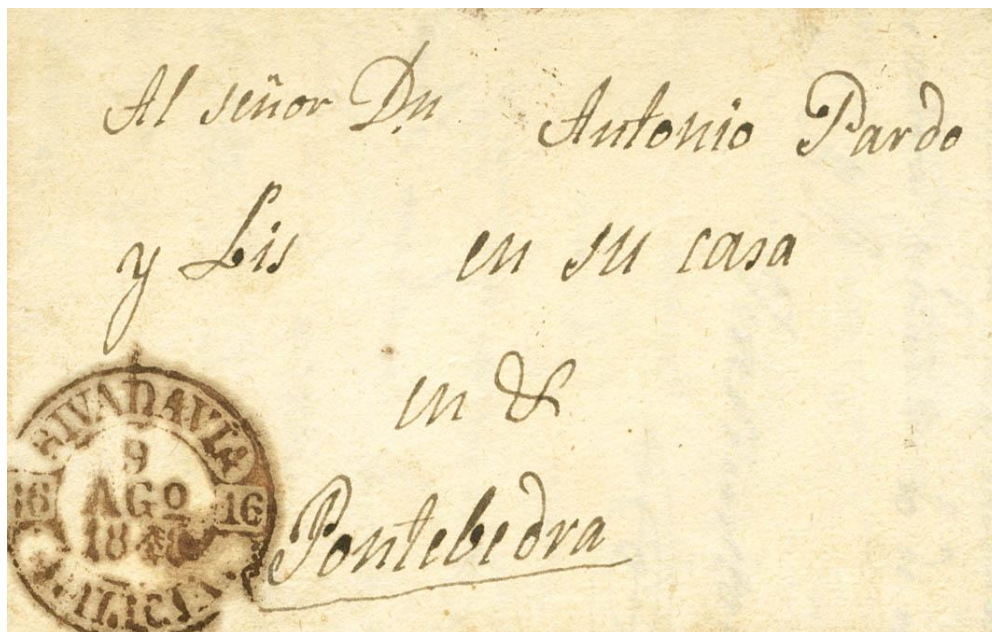 Al señor Dn Antonio Pardo
y Lis en su casa
en &
Pontebedra
RIVADAVIA
9
AGO
1848
16 16
GALICIA